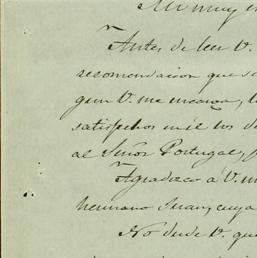 Mi muy
Antes de leer V.
recomendacion que
gun V. me
satisfechos mis
al Señor Portugal,
Agradezco á V. m
hermano Juan, cuya
No dude V. que